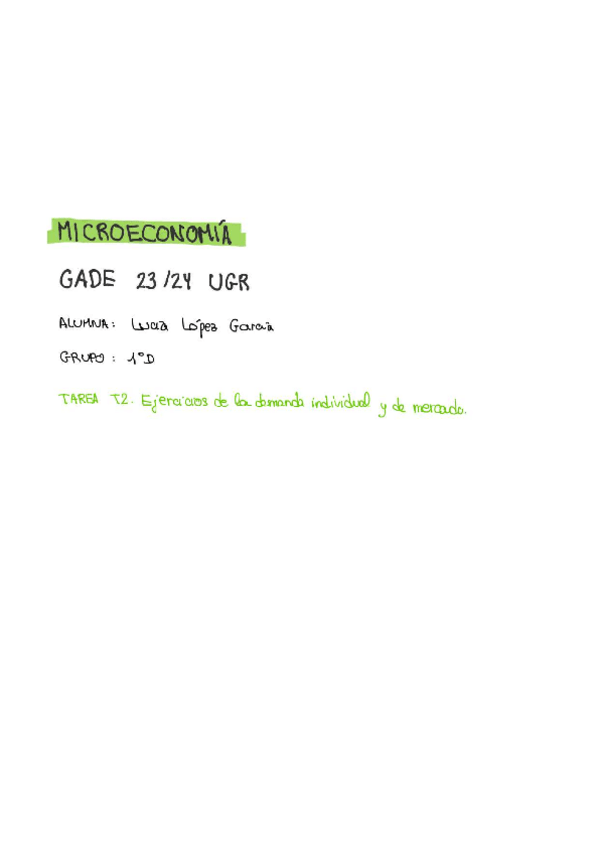 MICROECONOMÍA
GADE 23/24 UGR
ALUMNA: Lucía López García
GRUPO: 1ºD
TAREA T2. Ejercicios de la demanda individual y de mercado.